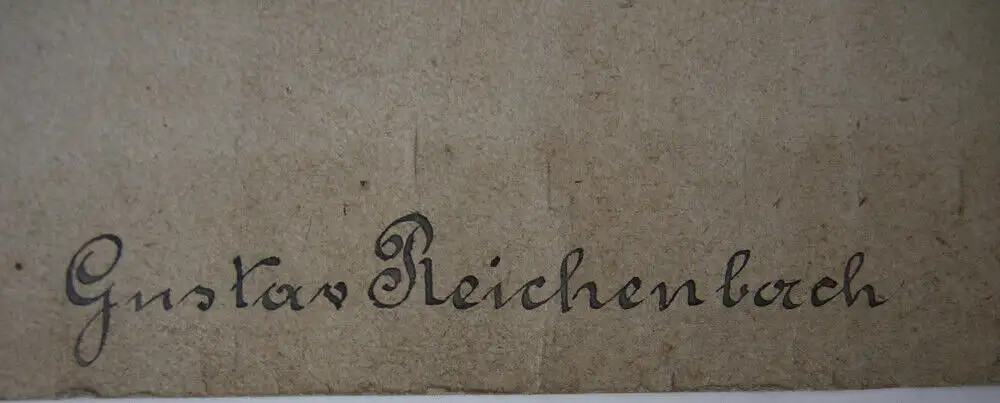 Gustav Reichenbach